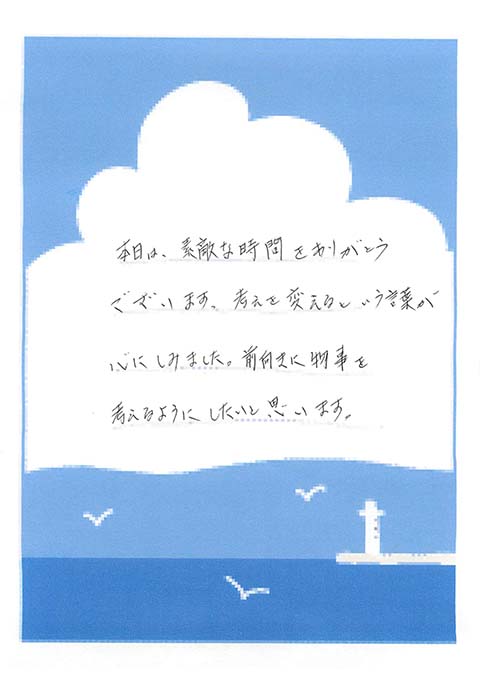 本日は、素敵な時間をありがとう
ございます。考えを変えるという言葉が
心にしみました。前向きに物事を
考えるようにしたいと思います。